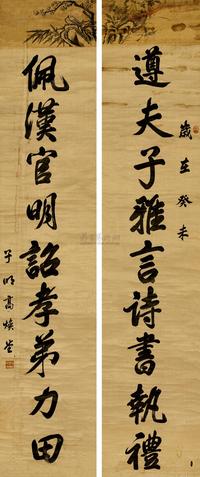 遵夫子雅言詩書執禮
歲在癸未
佩漢官明詔孝弟力田